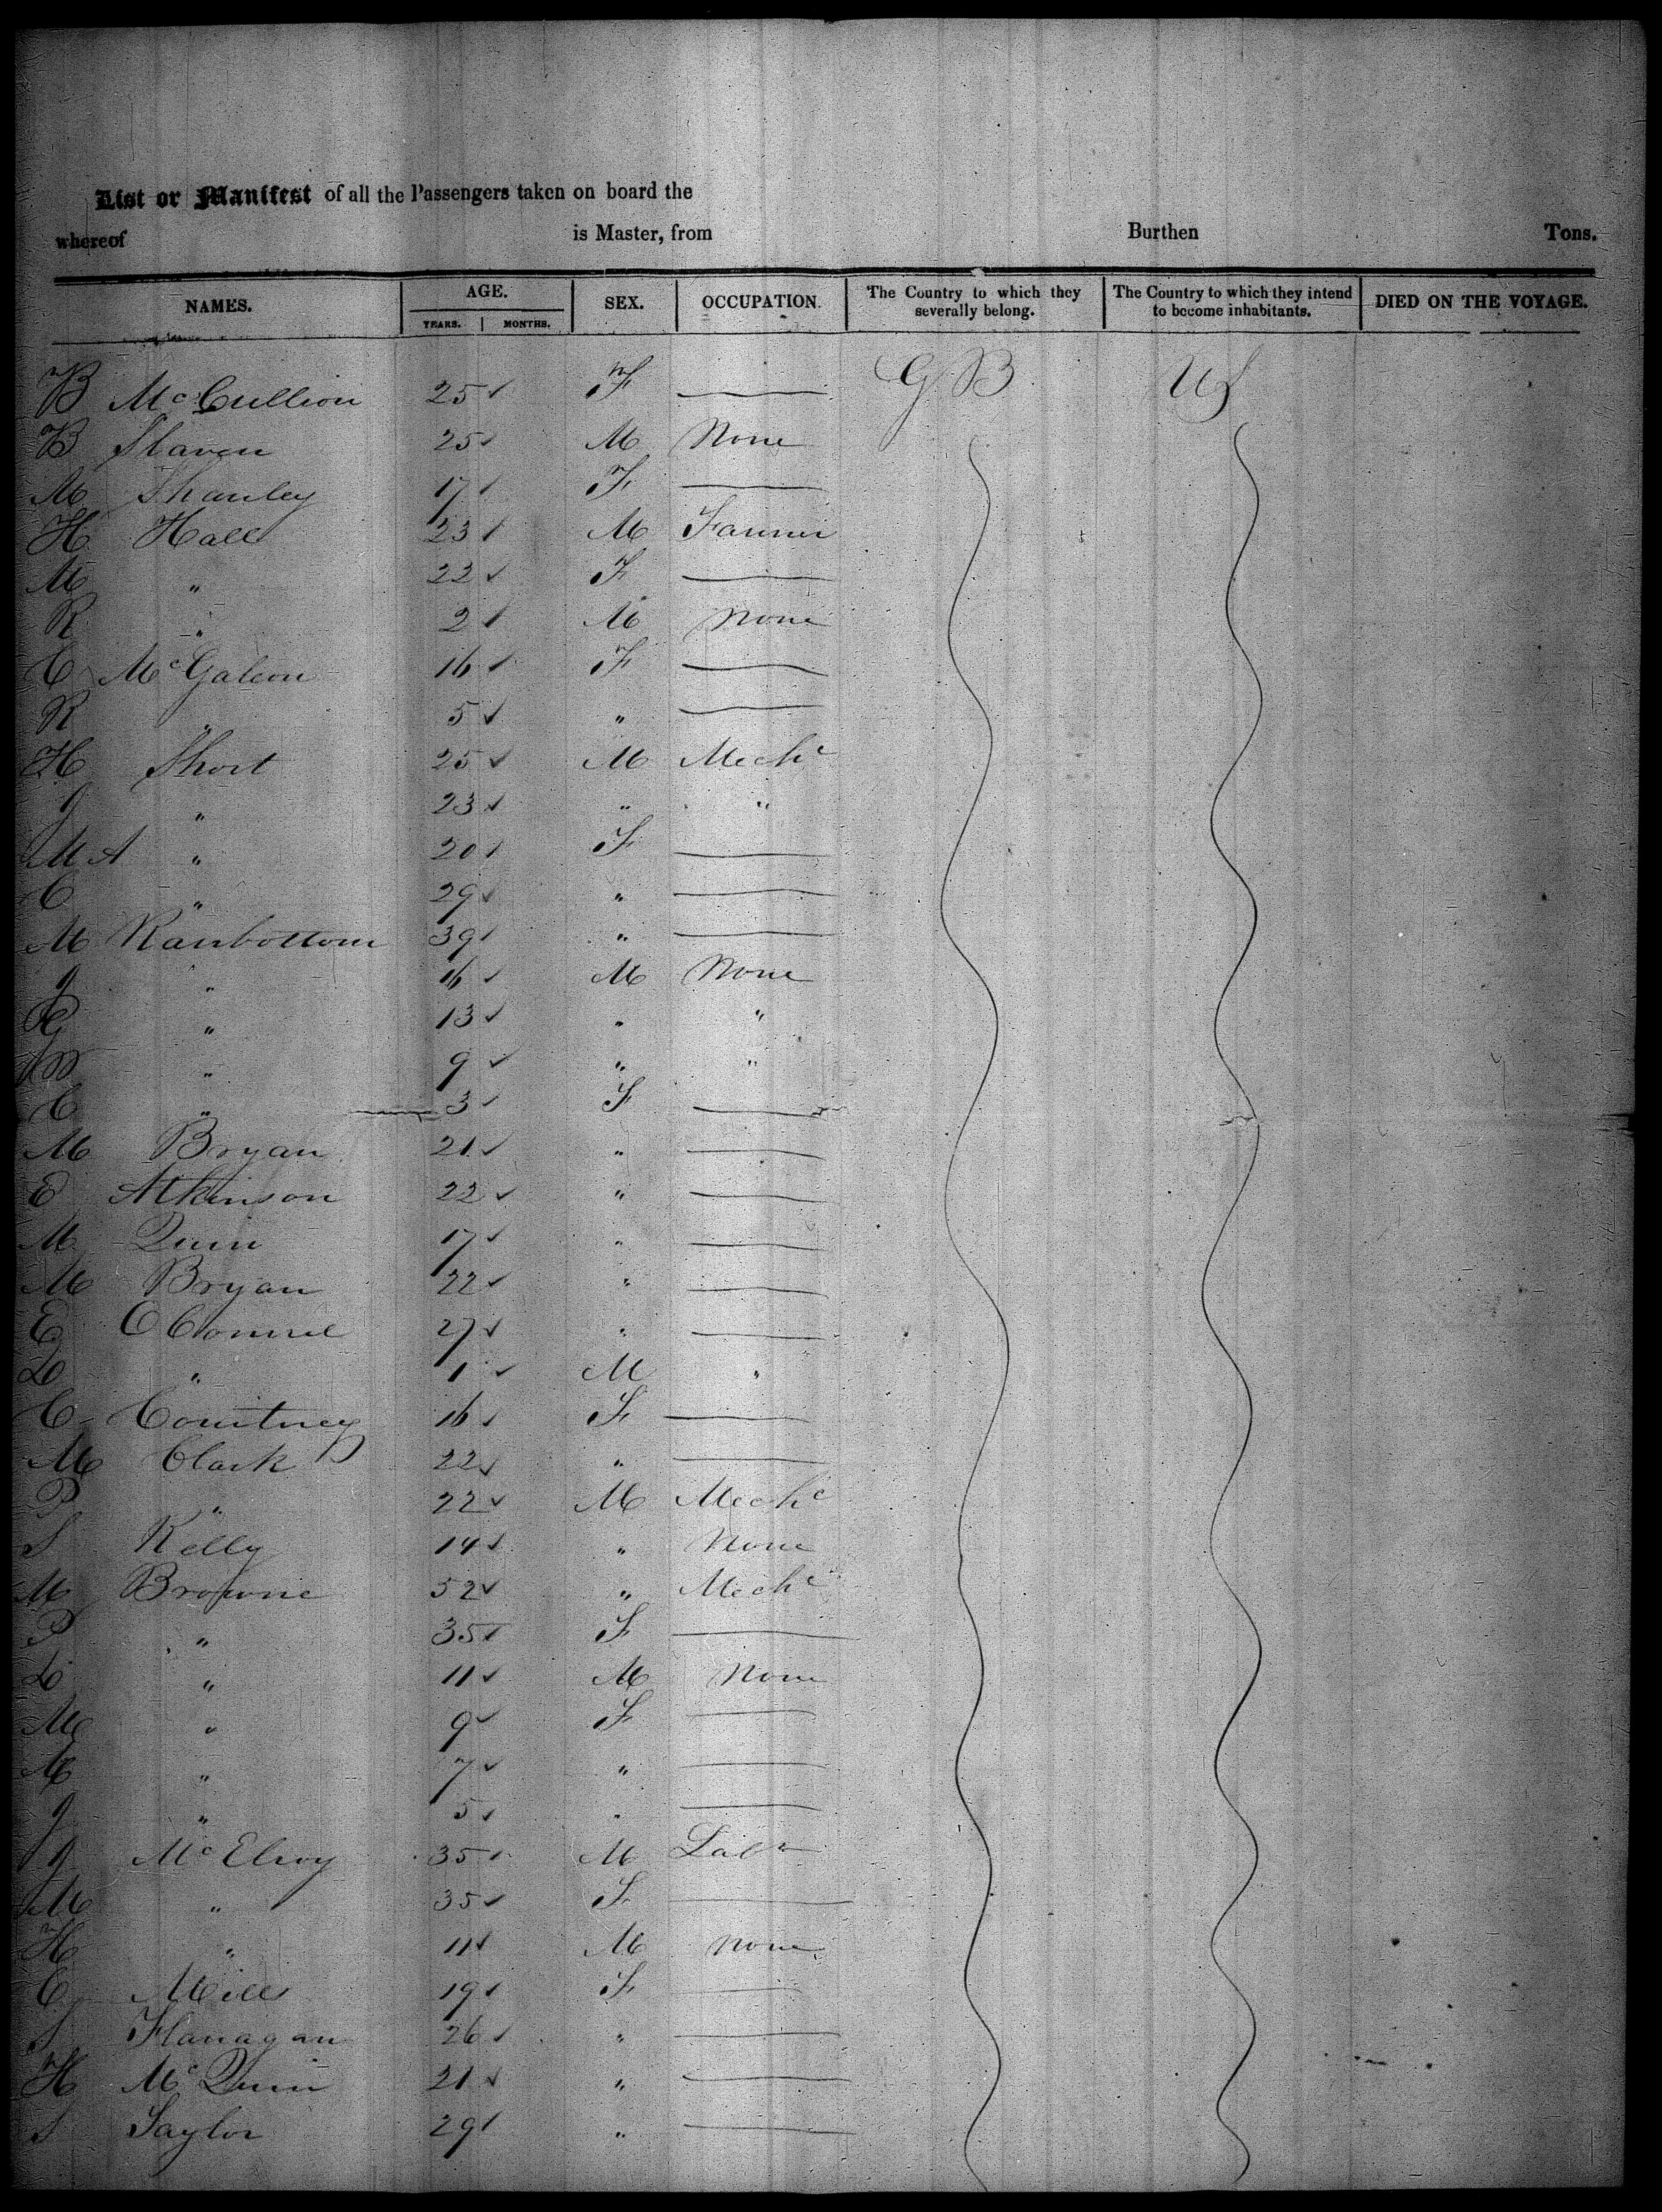 List or Manifest of all the Passengers taken on board the
whereof is Master, from Burthen Tons.
NAMES. AGE. YEARS. MONTHS. SEX. OCCUPATION. The Country to which they severally belong. The Country to which they intend to become inhabitants. DIED ON THE VOYAGE.
B McCullion 25 F — GB US
B Slaven 25 M None
M Shanley 17 F —
H Hall 23 M Farmer
M " 22 F —
R " 2 M None
C McGaleon 16 F —
R " 5 " —
H Short 25 M Mechc
J " 23 " "
M A " 20 F —
C " 29 " —
M Ranbottom 39 " —
J " 16 M None
" 13 " "
W " 9 " "
C " 3 F —
M Bryan 21 " —
E Atkinson 22 " —
M Quin 17 " —
M Bryan 22 " —
E OConnel 27 " —
D " 1 M "
C Courtney 16 F —
M Clark 22 " —
P " 22 M Mechc
S Kelly 14 " None
M Browne 52 " Mechc
P " 35 F —
L " 11 M None
M " 9 F —
M " 7 " —
J " 5 " —
J McElroy 35 M Labr
M " 35 F —
H " 11 M None
C Mills 19 F —
S Flanagan 26 " —
H McQuin 21 " —
S Taylor 29 " —